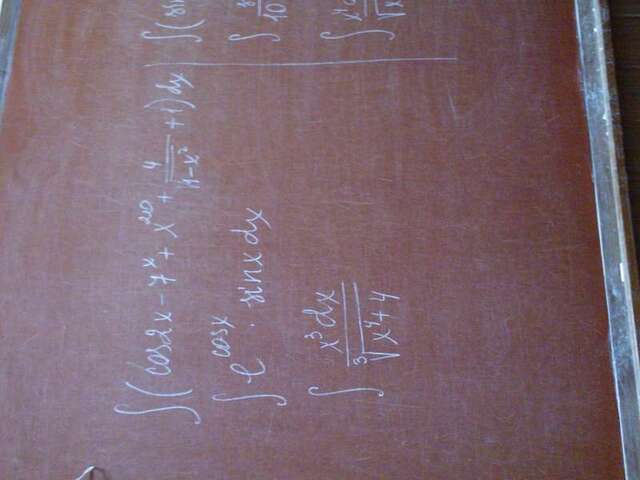 ∫(cos2x − 7ˣ + x²⁰⁰ + 4/√(1−x²) + 1)dx
∫e^(cosx) · sinx dx
∫x³dx/∛(x⁴+4)
∫(sin
∫
10
∫x⁴
√x